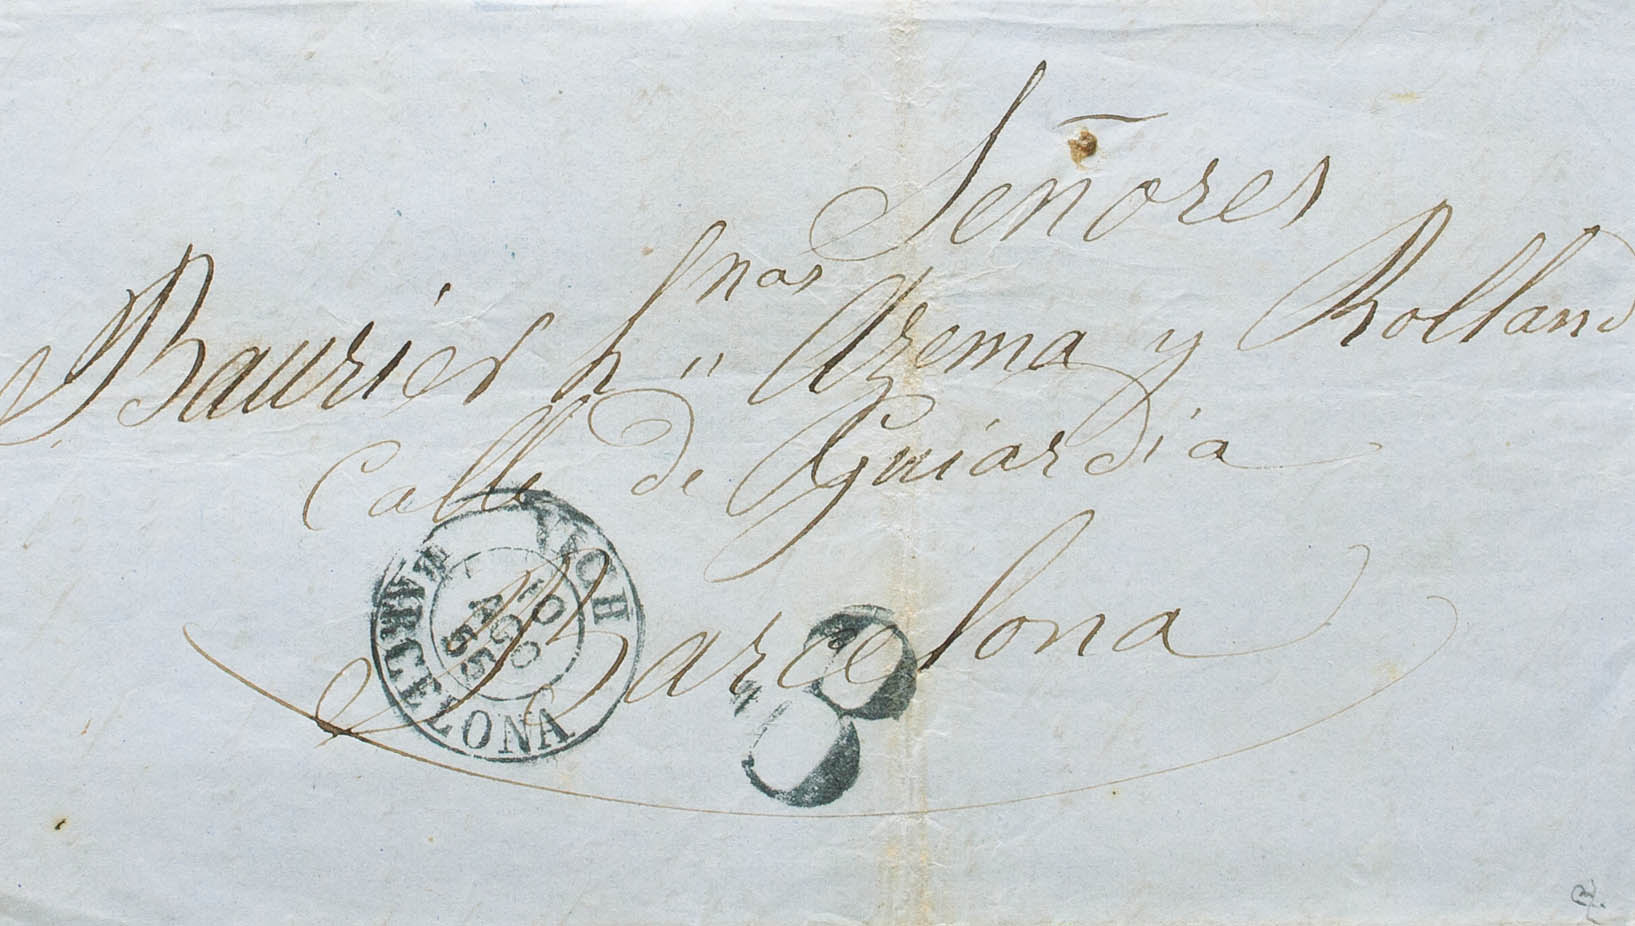 Señores
Baurier hnos Azema y Rolland
Calle de Guiardia
Barcelona
VICH
10
AGO
55
BARCELONA
8